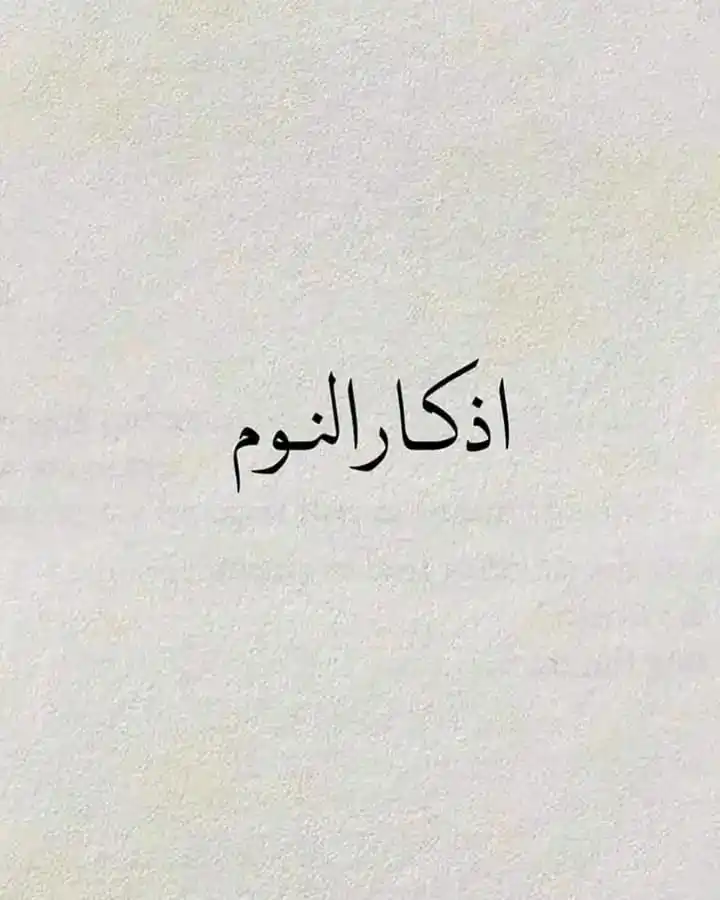 اذكار النوم